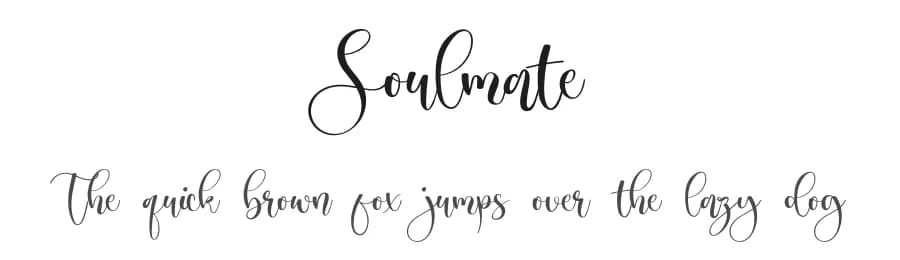 Soulmate
The quick brown fox jumps over the lazy dog